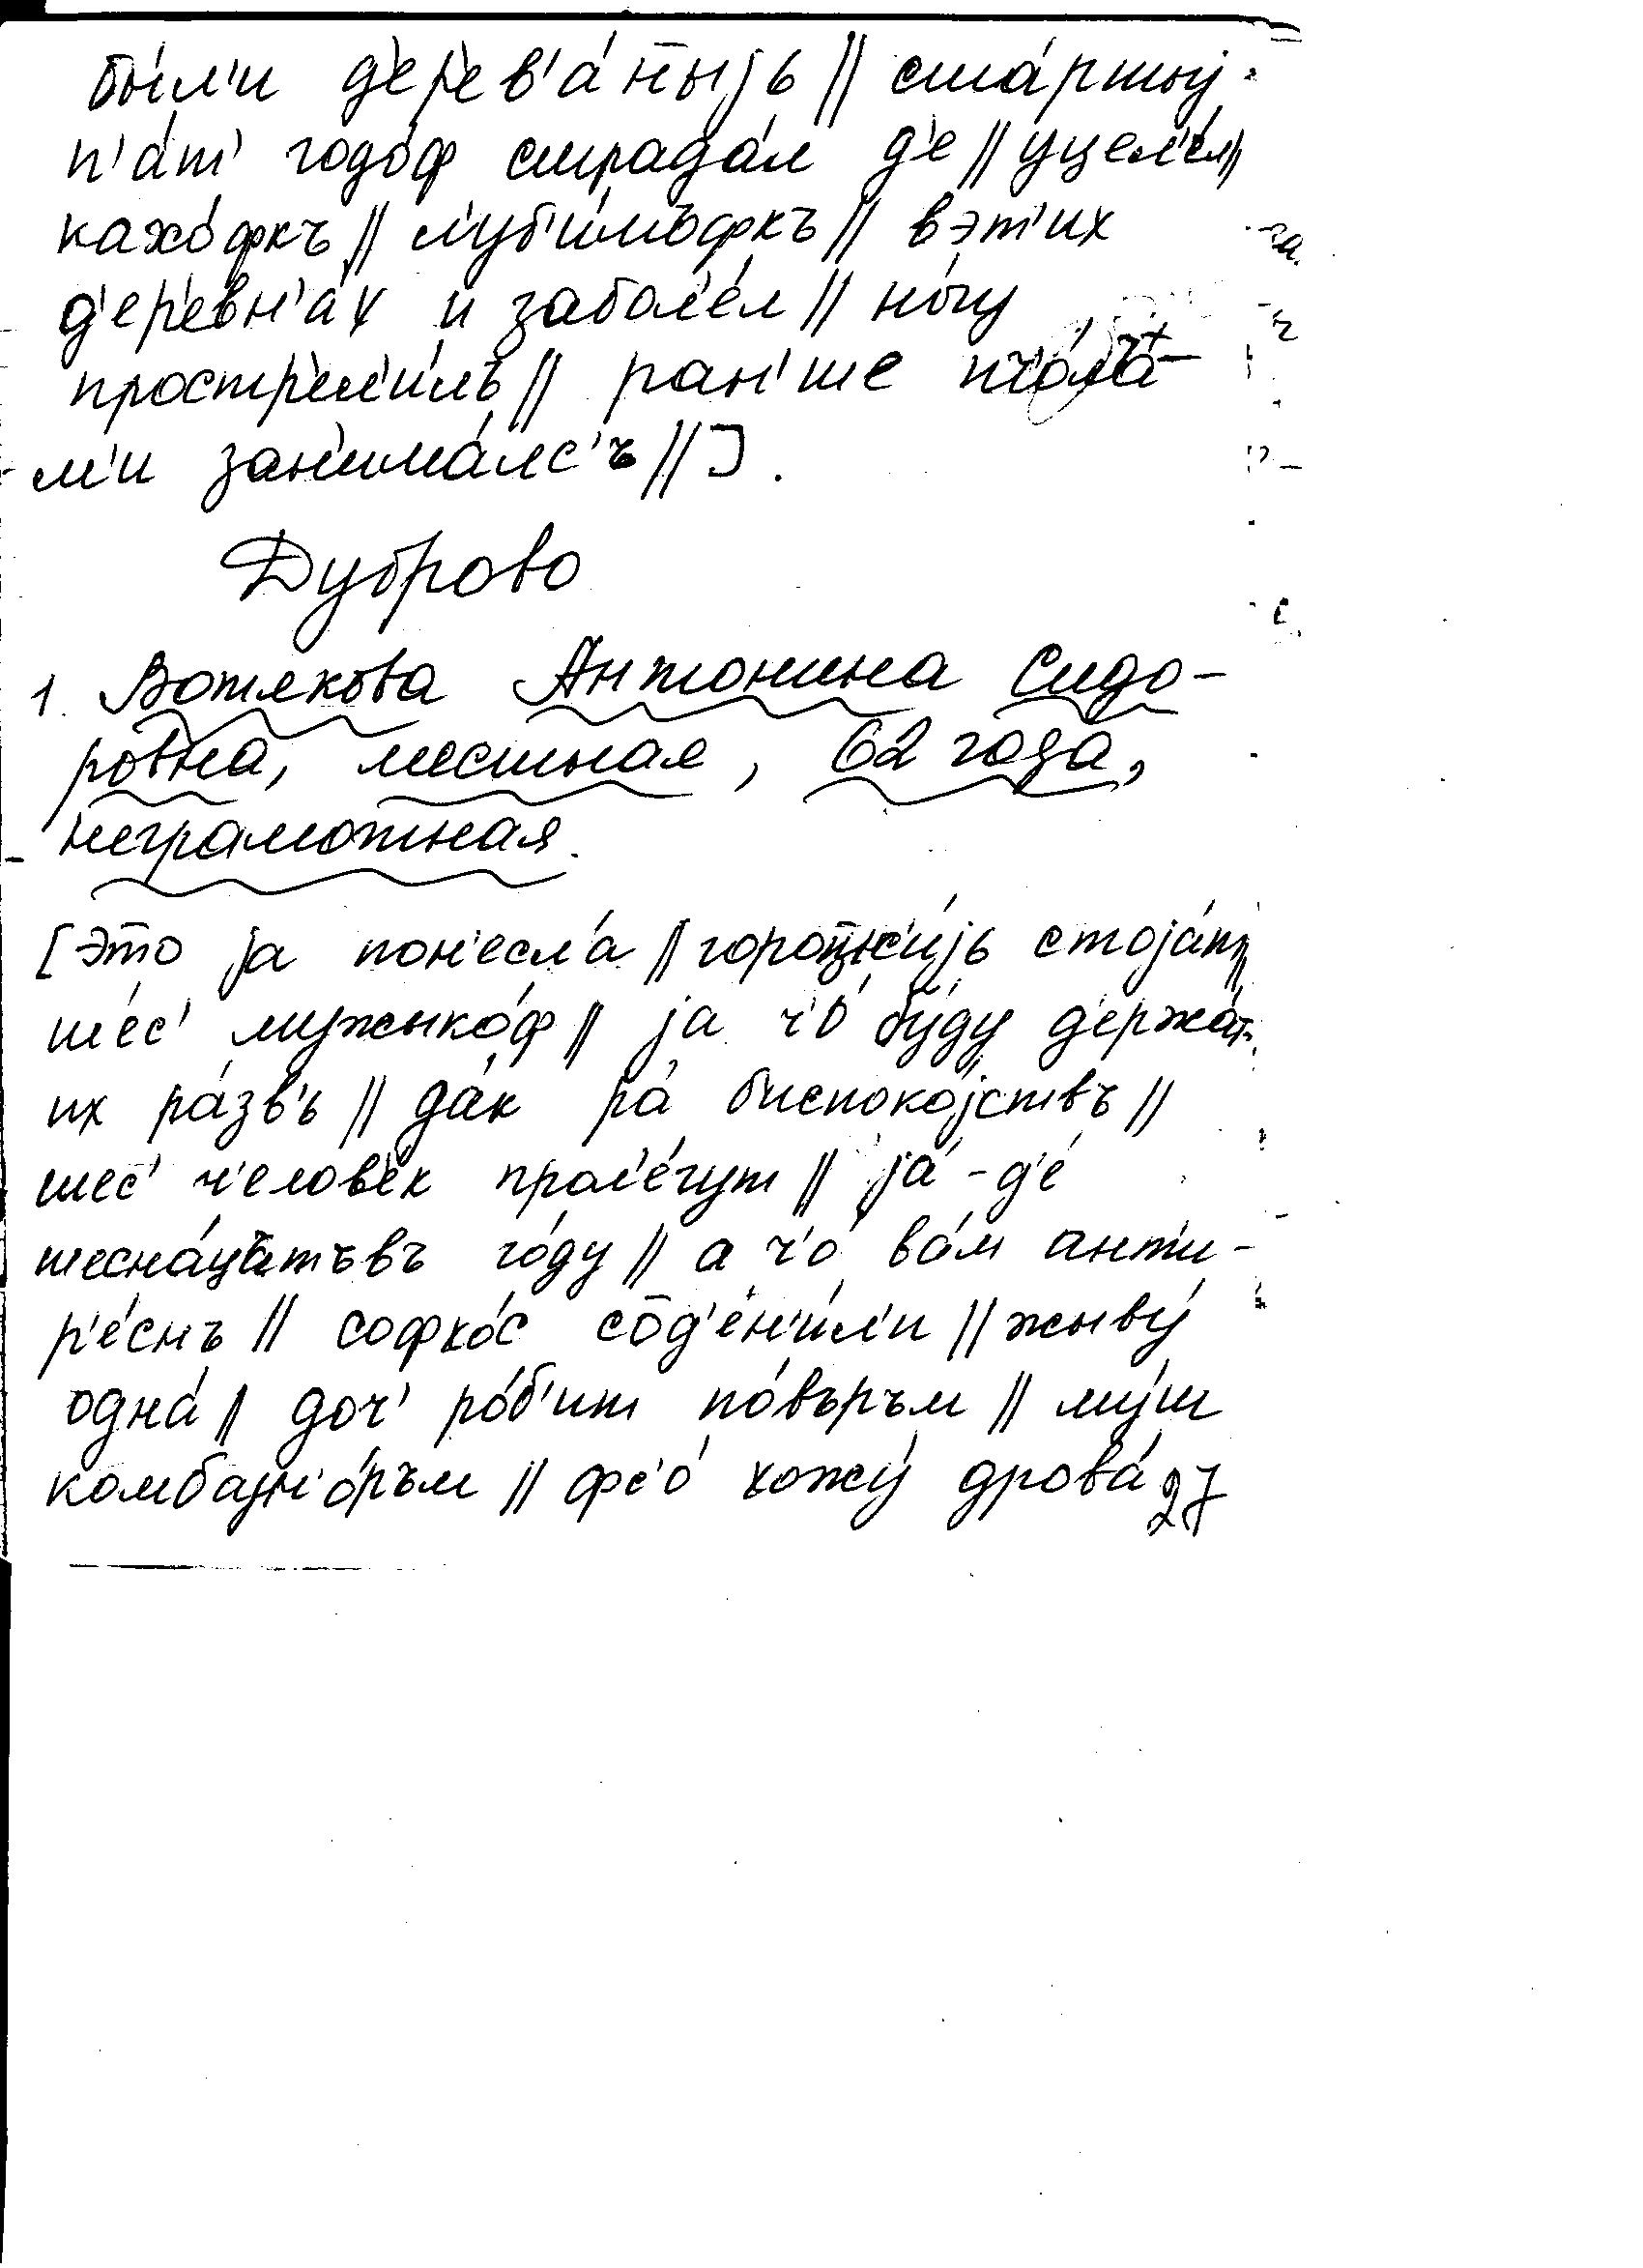 бы́л'и д'ер'ев'а́н̄ыjь // ста́ршыj
п'а́т' годо́ф страда́л д'е // уцел'е́л //
кахо́фкъ // л'уб'и́мъфкъ // в э́т'их
д'ер'евн'а́х и забол'е́л // но́гу
простр'ел'и́лъ // ра́н'ше пч'ола́-
м'и зан'има́лс'ъ // ].
Дуброво
1. Вотякова Антонина Сидо-
ровна, местная, 62 года,
неграмотная.
[э́то ја пон'есла́ // стоја́т //
ше́с' мужыко́ф // ја ч'о́ бу́ду д'ержа́т'
их ра́зв'ь // да́к ра́ биспоко́јствъ //
шес' ч'елов'е́к прол'е́гут // ја́-д'е́
шесна́ц̄ътъвъ го́ду // а ч'о́ ва́м ант'и-
р'е́снъ // софхо́с сōд'ен'и́л'и // жыву́
одна́ // доч' ро́б'ит по́въръм // му́ш
комбајн'о́ръм // фс'о́ хожу́ дрова́
27